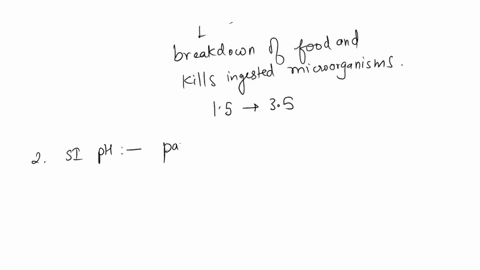 breakdown of food and
kills ingested microorganisms.
1.5 → 3.5
2. SI pH :— pa